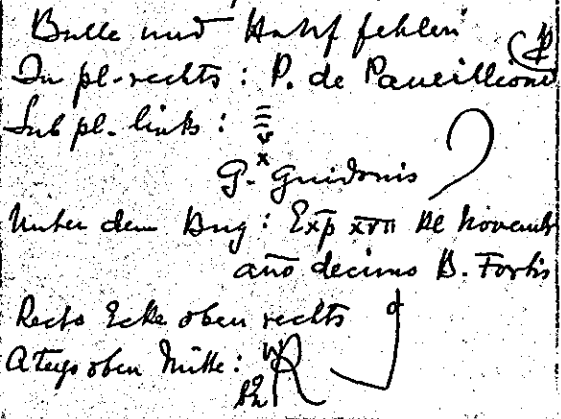 Bulle und Hanf fehlen
In pl. rechts: P. de
Sub pl. links:
v
x
G. Guidonis
Unter dem Bug: Exp xvii kl novemb
año decimo B. Fortis
Recto Ecke oben rechts
A tergo oben Mitte: R